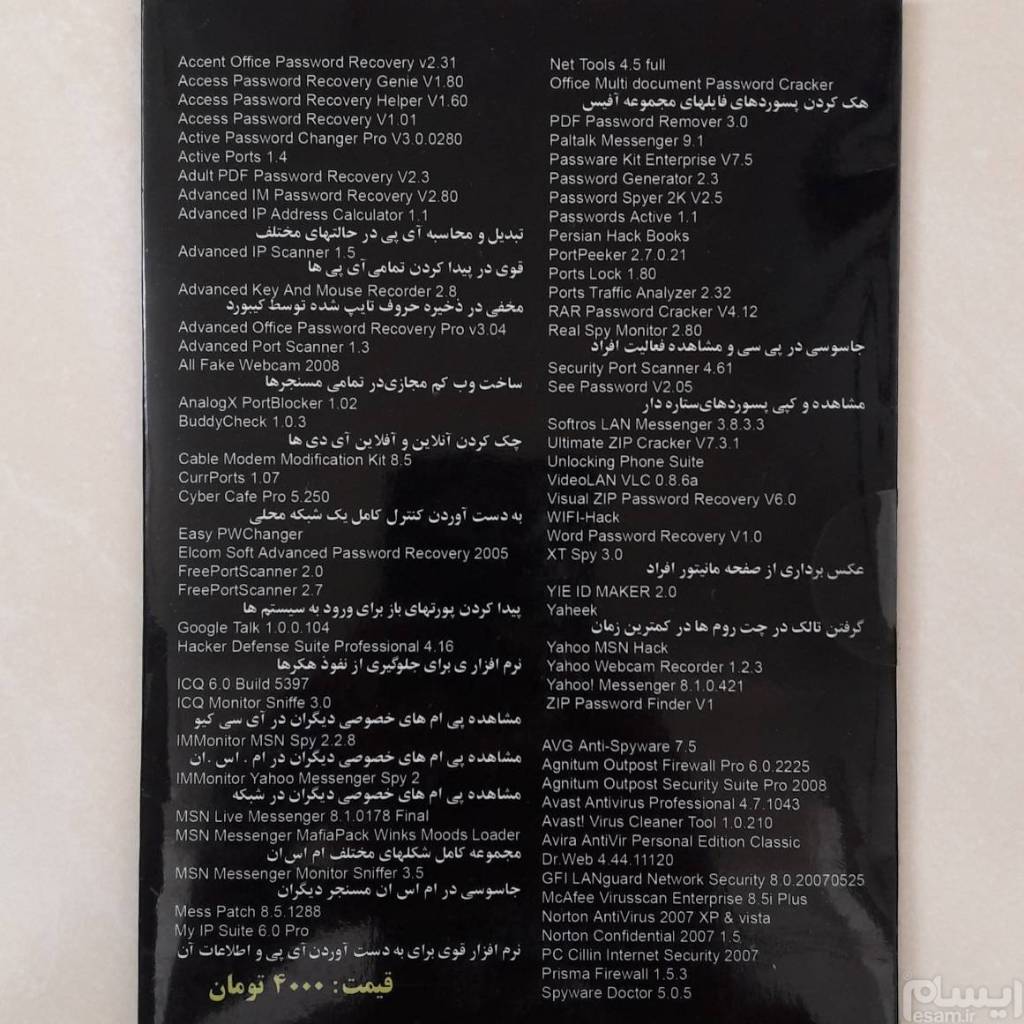 Accent Office Password Recovery v2.31
Access Password Recovery Genie V1.80
Access Password Recovery Helper V1.60
Access Password Recovery V1.01
Active Password Changer Pro V3.0.0280
Active Ports 1.4
Adult PDF Password Recovery V2.3
Advanced IM Password Recovery V2.80
Advanced IP Address Calculator 1.1
تبدیل و محاسبه آی پی در حالتهای مختلف
Advanced IP Scanner 1.5
قوی در پیدا کردن تمامی آی پی ها
Advanced Key And Mouse Recorder 2.8
مخفی در ذخیره حروف تایپ شده توسط کیبورد
Advanced Office Password Recovery Pro v3.04
Advanced Port Scanner 1.3
All Fake Webcam 2008
ساخت وب کم مجازی در تمامی مسنجرها
AnalogX PortBlocker 1.02
BuddyCheck 1.0.3
چک کردن آنلاین و آفلاین آی دی ها
Cable Modem Modification Kit 8.5
CurrPorts 1.07
Cyber Cafe Pro 5.250
به دست آوردن کنترل کامل یک شبکه محلی
Easy PWChanger
Elcom Soft Advanced Password Recovery 2005
FreePortScanner 2.0
FreePortScanner 2.7
پیدا کردن پورتهای باز برای ورود به سیستم ها
Google Talk 1.0.0.104
Hacker Defense Suite Professional 4.16
نرم افزار ی برای جلوگیری از نفوذ هکرها
ICQ 6.0 Build 5397
ICQ Monitor Sniffe 3.0
مشاهده پی ام های خصوصی دیگران در آی سی کیو
IMMonitor MSN Spy 2.2.8
مشاهده پی ام های خصوصی دیگران در ام . اس .ان
IMMonitor Yahoo Messenger Spy 2
مشاهده پی ام های خصوصی دیگران در شبکه
MSN Live Messenger 8.1.0178 Final
MSN Messenger MafiaPack Winks Moods Loader
مجموعه کامل شکلهای مختلف ام اس ان
MSN Messenger Monitor Sniffer 3.5
جاسوسی در ام اس ان مسنجر دیگران
Mess Patch 8.5.1288
My IP Suite 6.0 Pro
نرم افزار قوی برای به دست آوردن آی پی و اطلاعات آن
قیمت: ۴۰۰۰ تومان
Net Tools 4.5 full
Office Multi document Password Cracker
هک کردن پسوردهای فایلهای مجموعه آفیس
PDF Password Remover 3.0
Paltalk Messenger 9.1
Passware Kit Enterprise V7.5
Password Generator 2.3
Password Spyer 2K V2.5
Passwords Active 1.1
Persian Hack Books
PortPeeker 2.7.0.21
Ports Lock 1.80
Ports Traffic Analyzer 2.32
RAR Password Cracker V4.12
Real Spy Monitor 2.80
جاسوسی در پی سی و مشاهده فعالیت افراد
Security Port Scanner 4.61
See Password V2.05
مشاهده و کپی پسوردهای ستاره دار
Softros LAN Messenger 3.8.3.3
Ultimate ZIP Cracker V7.3.1
Unlocking Phone Suite
VideoLAN VLC 0.8.6a
Visual ZIP Password Recovery V6.0
WIFI-Hack
Word Password Recovery V1.0
XT Spy 3.0
عکس برداری از صفحه مانیتور افراد
YIE ID MAKER 2.0
Yaheek
گرفتن تالک در چت روم ها در کمترین زمان
Yahoo MSN Hack
Yahoo Webcam Recorder 1.2.3
Yahoo! Messenger 8.1.0.421
ZIP Password Finder V1
AVG Anti-Spyware 7.5
Agnitum Outpost Firewall Pro 6.0.2225
Agnitum Outpost Security Suite Pro 2008
Avast Antivirus Professional 4.7.1043
Avast! Virus Cleaner Tool 1.0.210
Avira AntiVir Personal Edition Classic
Dr.Web 4.44.11120
GFI LANguard Network Security 8.0.20070525
McAfee Virusscan Enterprise 8.5i Plus
Norton AntiVirus 2007 XP & vista
Norton Confidential 2007 1.5
PC Cillin Internet Security 2007
Prisma Firewall 1.5.3
Spyware Doctor 5.0.5
ایسام
esam.ir